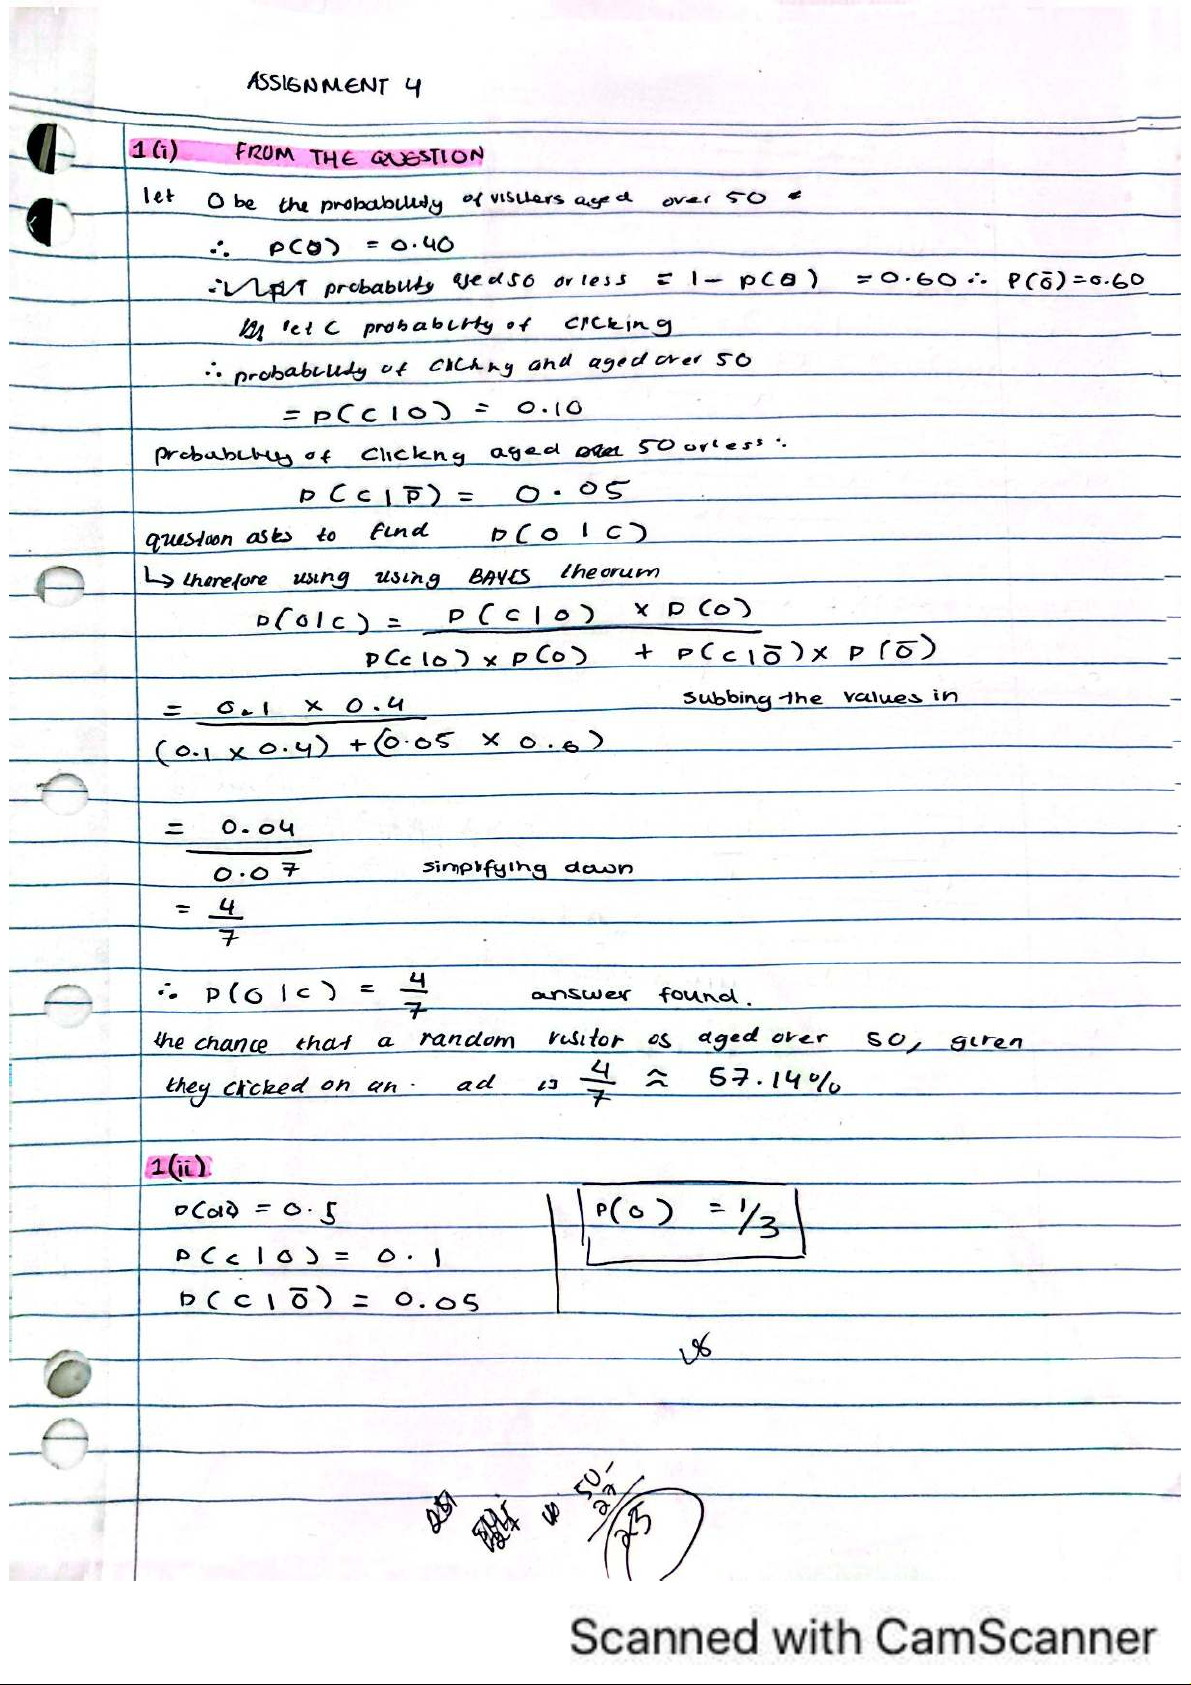 ASSIGNMENT 4
1(i) FROM THE QUESTION
let O be the probability of visiters aged over 50
∴ P(O) = 0.40
probability aged 50 or less = 1 - P(O) = 0.60 ∴ P(Ō) = 0.60
let C probability of clicking
∴ probability of clicking and aged over 50
= P(C|O) = 0.10
probability of clicking aged 50 or less:
P(C|Ō) = 0.05
question asks to find P(O|C)
↳ therefore using using BAYES theorum
P(O|C) = P(C|O) × P(O)
P(C|O) × P(O) + P(C|Ō) × P(Ō)
= 0.1 × 0.4 subbing the values in
(0.1 × 0.4) + (0.05 × 0.6)
= 0.04
0.07 simplifying down
= 4
7
∴ P(O|C) = 4/7 answer found.
the chance that a random visitor is aged over 50, given
they clicked on an ad is 4/7 ≈ 57.14%
1(ii)
= 0.5 P(O) = 1/3
P(C|O) = 0.1
P(C|Ō) = 0.05
50-
25
Scanned with CamScanner